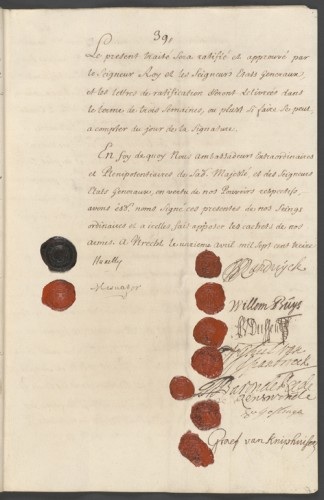 39.
Le present traité Sera ratifié et approuvé par
le Seigneur Roy et les Seigneurs Etats Generaux,
et les lettres de ratification seront delivrées dans
le terme de trois Semaines, ou plustt Si faire Se peut,
a compter du jour de la Signature.
En foy de quoy Nous ambassadeurs Extraordinaires
et Plenipotentiaires de Sad. Majesté, et des Seigneurs
Etats Generaux, en vertu de nos Pouvoirs respectifs,
avons esd. noms Signé ces presentes de nos Seings
ordinaires et a icelles fait apposer les cachets de nos
armes. A Utrecht le onzieme avril mil Sept cent treize
Huxelles
Mesnager
Randwijck
Willem Buys
BvDussen
Rhede
Renswoude
Graef van Kniphuisen